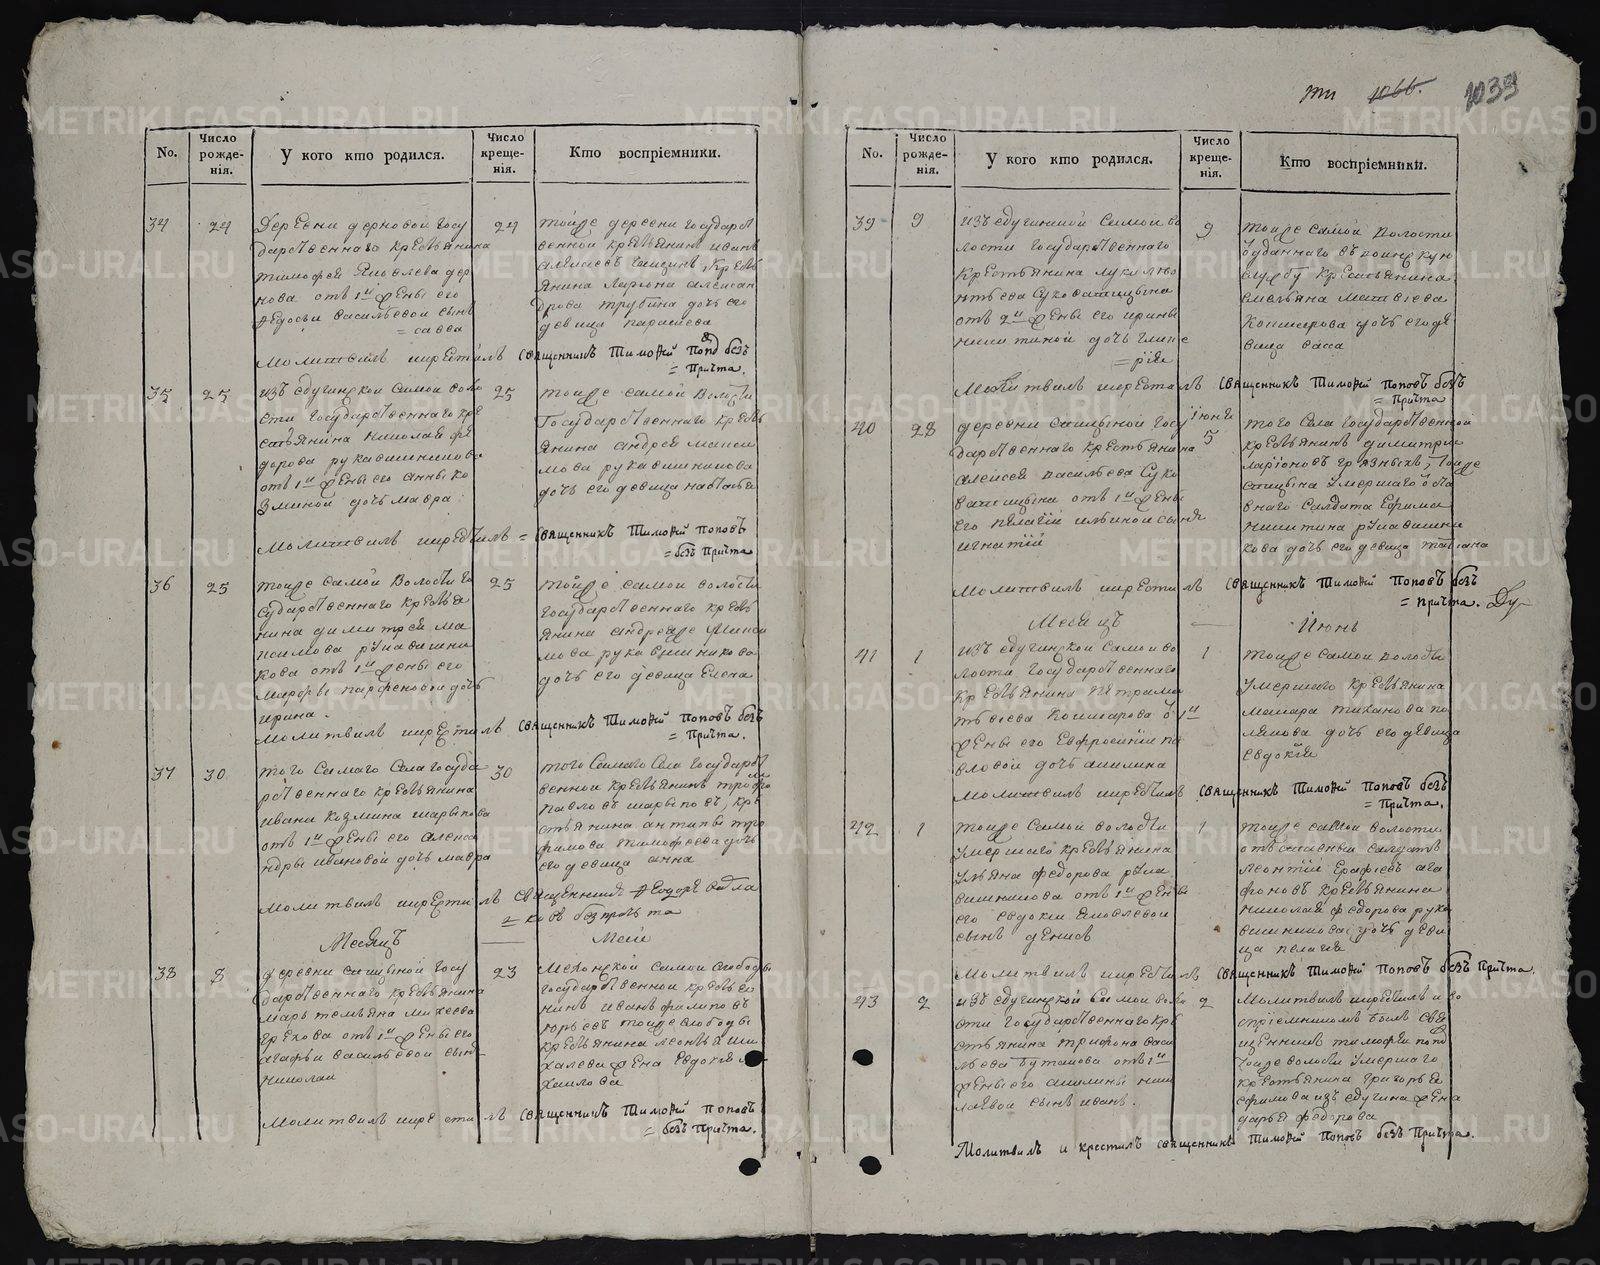 1039
No.
Число рожде-нія.
У кого кто родился.
Число креще-нія.
Кто воспріемники.
34
24
Деревни дерновой госу
дарственнаго крестьянина
тимофея Яковлева дер
нова отъ 1й жены его
Федосьи васильевой сынъ
= савва
24
тойже деревни государст
венной крестьянинъ иванъ
янина Лариона алексан
дрова трубина дочь его
девица парасковья
молитвилъ и крестилъ священникъ Тимофей Поповъ безъ
= Причта.
35
25
сти государственнаго кре
стьянина николая фе
дорова рукавишникова
отъ 1й жены его анны ко
зминой дочь мавра
25
тойже самой волости
Государственнаго кресть
янина андрея макси
мова рукавишникова
дочь его девица наталья
молитвилъ и крестилъ = священникъ Тимофей Поповъ
= безъ Причта
36
25
тойже самой волости го
сударственнаго крестья
нина димитрея ма
ксимова рукавишни
кова отъ 1й жены его
марфы парфеновой дочь
ирина.
25
тойже самой волости
государственнаго кресть
янина андрея
мова рукавишникова
дочь его девица Елена
молитвилъ и крестилъ священникъ Тимофей Поповъ безъ
= Причта.
37
30
того самаго села государ
ственнаго крестьянина
ивана козмина шарыпова
отъ 1й жены его алекса
ндры ивановой дочь мавра
30
того самаго села государст
венной крестьянинъ трофи
павловъ шарыповъ, кре
стьянина антипы тро
фимова тимофеева дочь
его девица анна
молитвилъ и крестилъ священникъ Феодоръ
= ковъ без причта
Месяцъ
Маїй
38
8
деревни спицыной госу
дарственнаго крестьянина
мартемьяна михеева
грехова отъ 1й жены его
агафьи васильевой сынъ
николай
23
Мехонской самой слободы
государственной крестья
нинъ иванъ филиповъ
юрьевъ тойже слободы
крестьянина леонтья ми
халева жена Евдокия м
хаилова
молитвилъ и крестилъ священникъ Тимофей Поповъ
= безъ Причта.
No.
Число рожде-нія.
У кого кто родился.
Число креще-нія.
Кто воспріемники.
39
9
лости государственнаго
крестьянина луки лео
нтьева суковатицына
отъ 2й жены его ирины
никитиной дочь глике
= рія
9
тойже самой волости
отданнаго въ воинскую
службу крестьянина
емельяна матвеева
кошкарова дочь его де
вица васса
молитвилъ и крестилъ священникъ Тимофей Поповъ безъ
= Причта
40
28
деревни спицыной госу
дарственнаго крестьянина
алексея васильева суко
ватицына отъ 1й жены
его пелагіи ильиной сынъ
игнатій
іюня
5
того села государственной
крестьянинъ димитри
ларіоновъ грязныхъ, тойже
спицына умершаго
внаго салдата Ефрима
никитина рукавишни
кова дочь его девица татіана
молитвилъ и крестилъ священникъ Тимофей Поповъ безъ
= Причта.
Месяцъ
Июнь
41
1
лости государственнаго
крестьянина петра ма
твеева кошкарова о 1й
жены его Евфросиніи па
вловой дочь акилина
1
тойже самой волости
умершаго крестьянина
макара тиханова по
лякова дочь его девица
евдокия
молитвилъ и крестилъ священникъ Тимофей Поповъ безъ
= Причта.
42
1
тойже самой волости
умершаго крестьянина
ульяна федорова рука
вишникова отъ 1й жены
его евдокіи яковлевой
сынъ денисъ
1
тойже самой волости
отставный салдатъ
леонтій Ерафѣевъ ага
фоновъ крестьянина
николая федорова рука
вишникова дочь деви
ца пелагия
молитвилъ и крестилъ священникъ Тимофей Поповъ безъ Причта.
43
2
сти государственнаго кре
стьянина трифона васи
льева бутакова отъ 1й
жены его акилины ник
лаевой сынъ иванъ.
2
молитвилъ и крестилъ и во
спріемникомъ былъ свя
щенникъ тимофей попо
тойже волости умершаго
крестьянина григорья
ефимова из едугина жена
дарья федорова
Молитвилъ и крестилъ священникъ Тимофей Поповъ безъ Причта.
METRIKI.GASO-URAL.RU